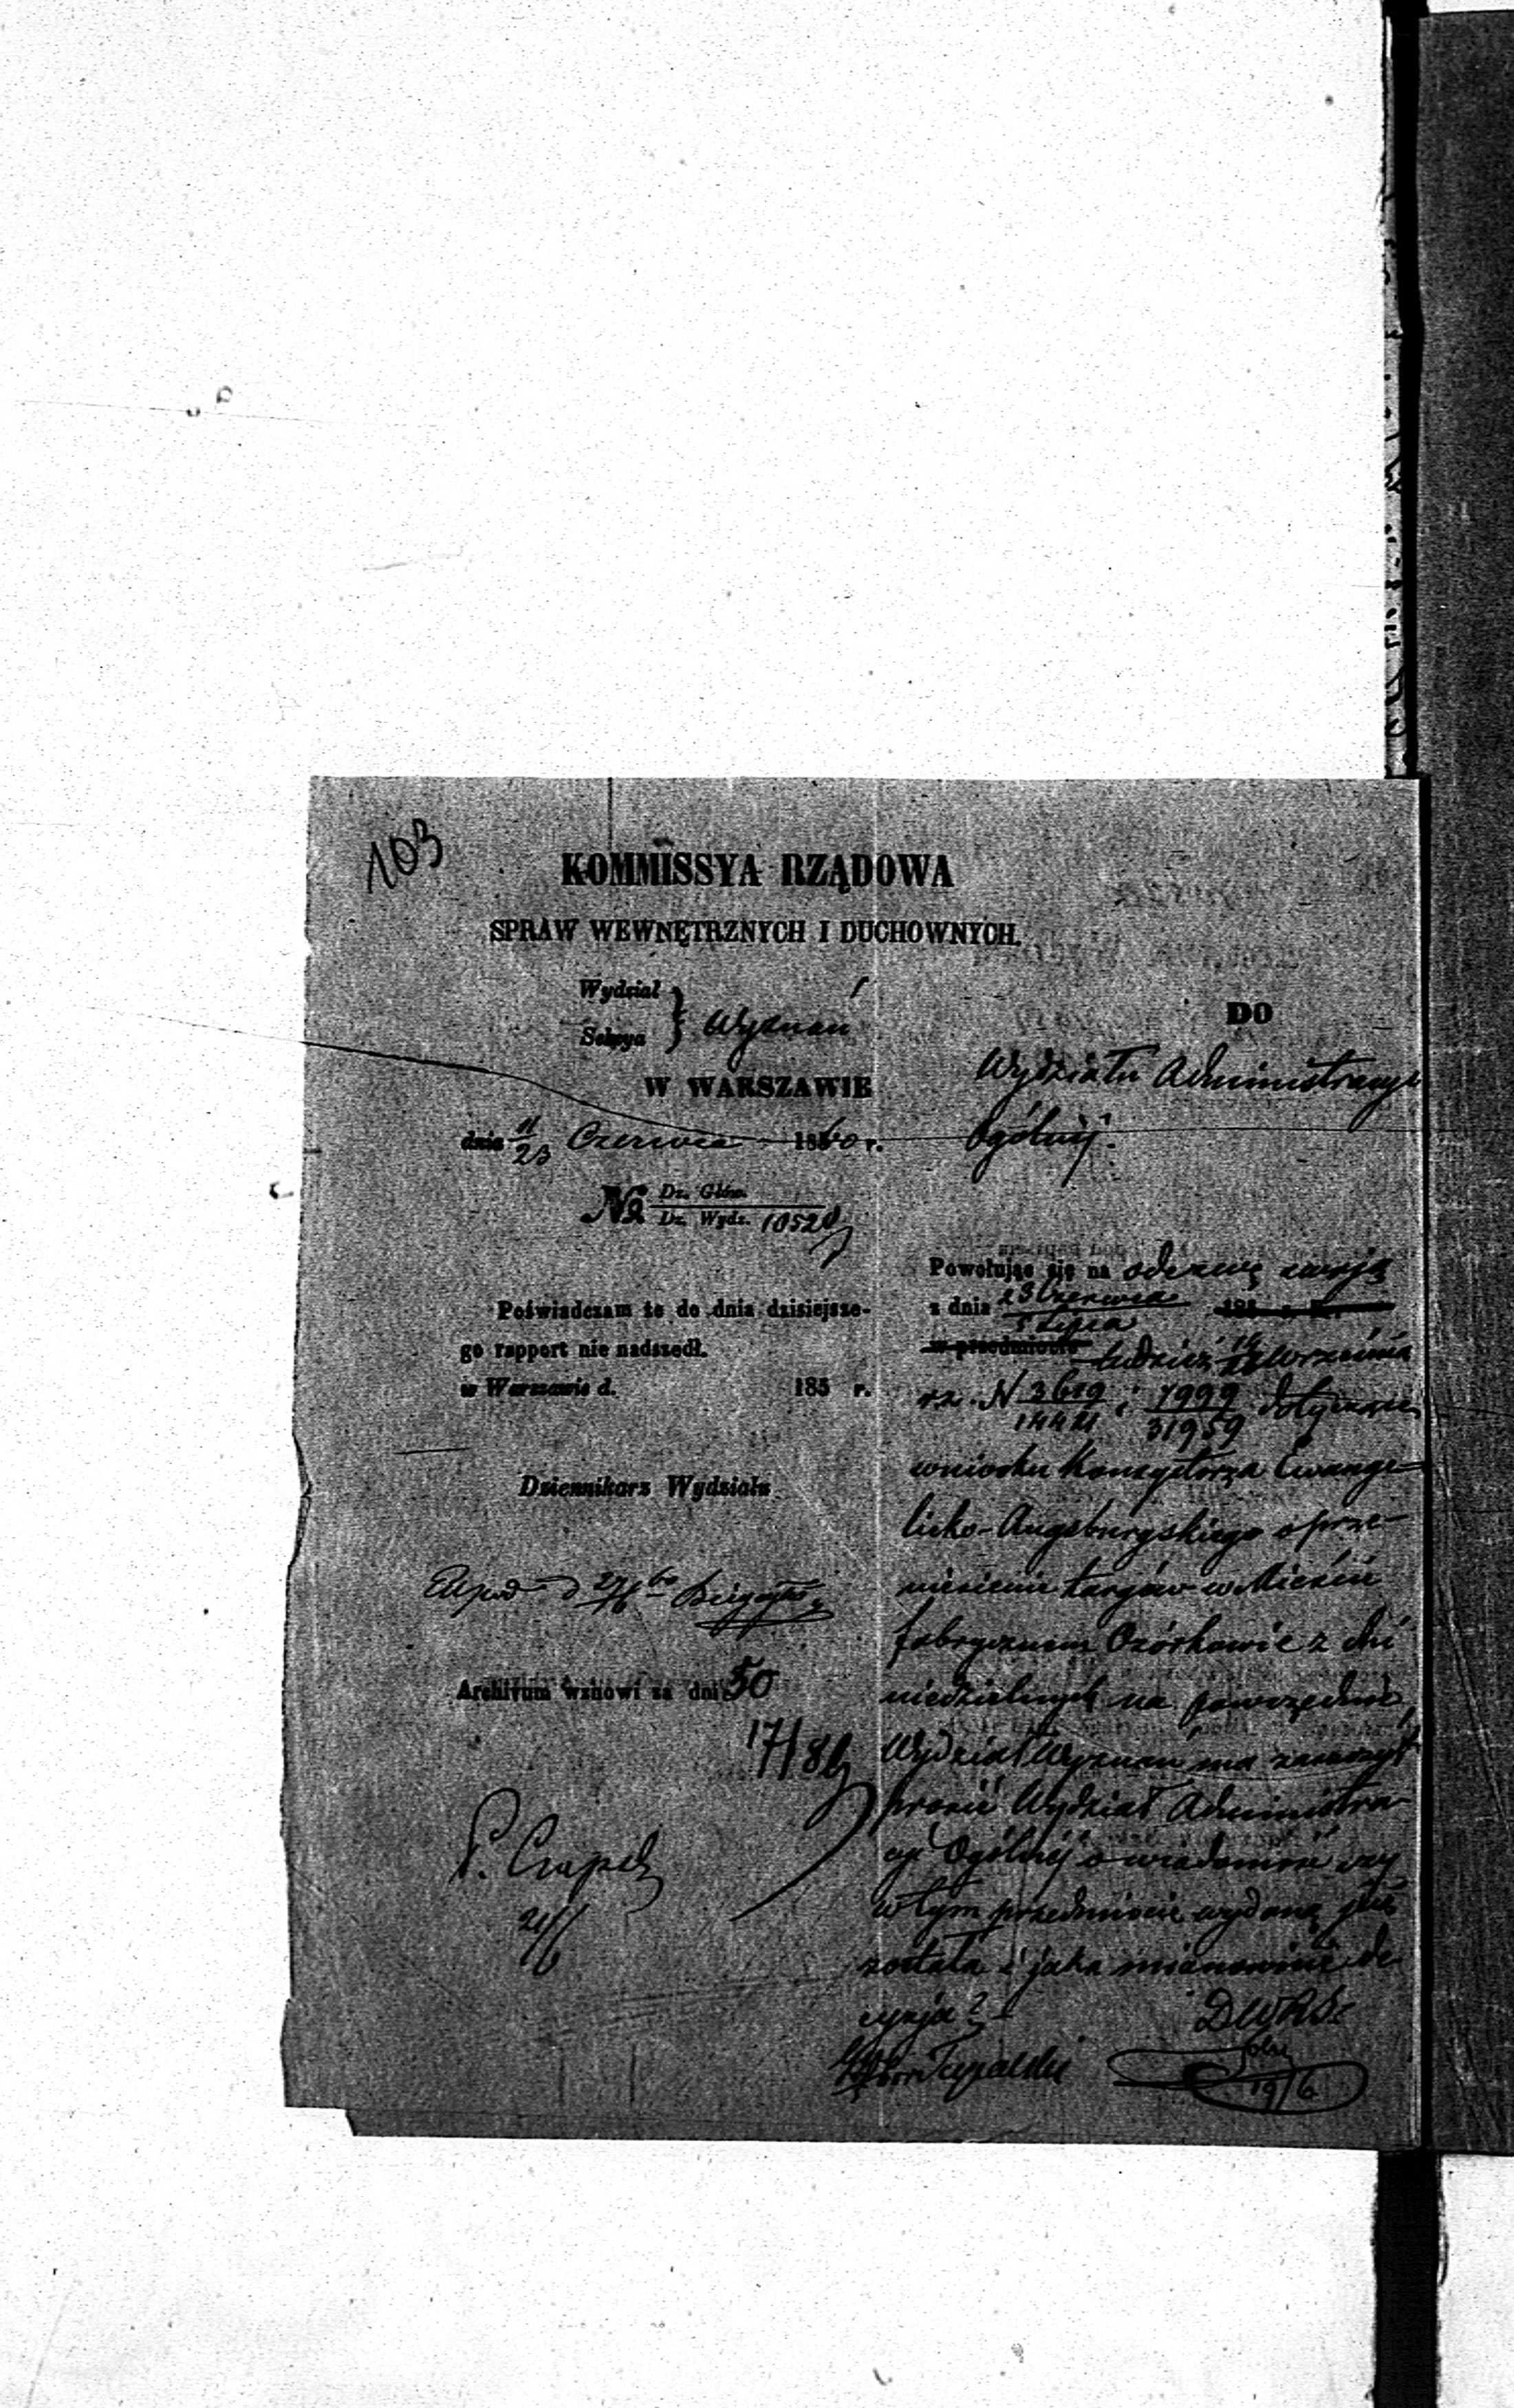 103
KOMMISSYA RZĄDOWA
SPRAW WEWNĘTRZNYCH I DUCHOWNYCH.
Wydział
Sekcya } Wyznań
W WARSZAWIE
dnia 11/23 Czerwca 1860 r.
№ Dz. Głów.
Dz. Wydz. 10520
Poświadczam że do dnia dzisiejsze-
go rapport nie nadszedł.
w Warszawie d. 185 r.
Dziennikarz Wydziału
27/6 60
Archivum wznowi za dni 50
17/8
P. Czapel
21/6
DO
Wydziału Administracyi
Ogólnéj.
Powołując się na odezwę swoją
z dnia 23 Czerwca / 5 Lipca 185 r. N.
w przedmiocie tudzież Września
rz. N 3619/14421 i 7999/31959 dotyczące
wniosku Konsystorza Ewange-
licko-Augsburgskiego o prze-
niesienie targów w Mieście
fabrycznem Ozórkowie z dni
niedzielnych na powszednie,
Wydział Wyznań ma zaszczyt
prosić Wydział Administra-
cyi Ogólnéj o wiadomość czy
w tym przedmiocie wydaną już
została i jaka mianowicie de-
cyzja?
19/6